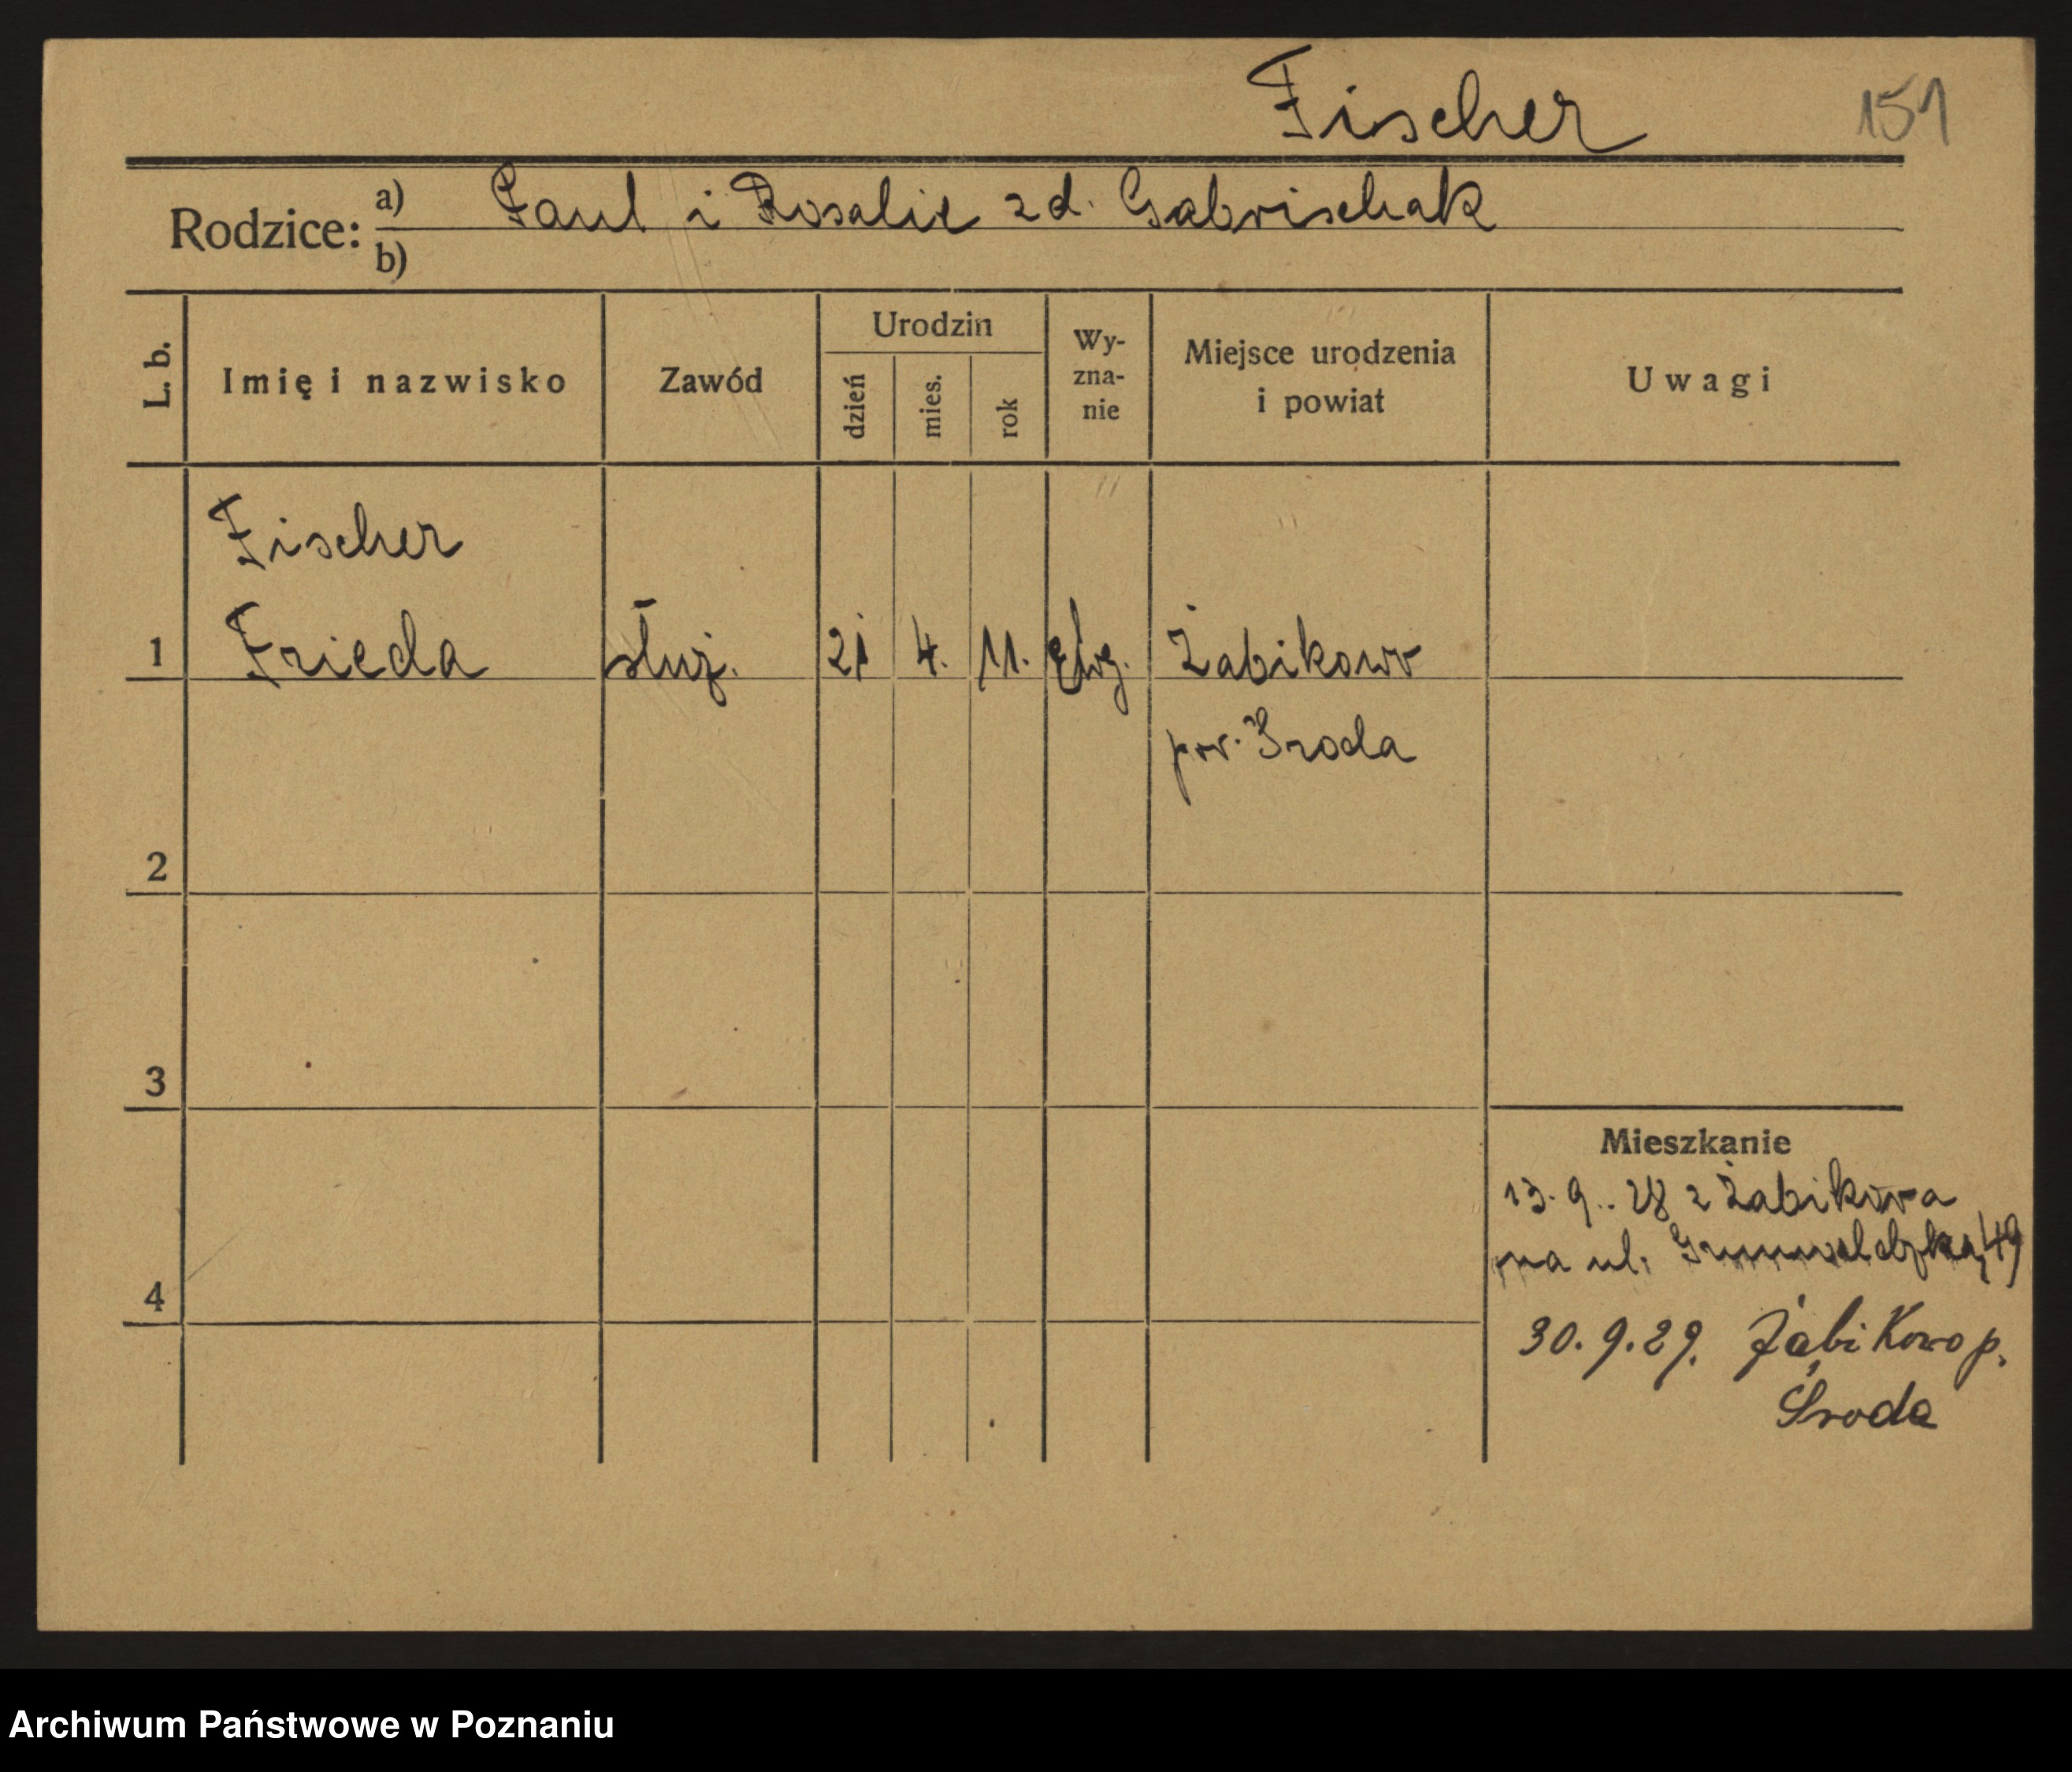 Fischer 151
Rodzice: a) Paul i Rosalie zd. Gabrischak
b)
L. b. Imię i nazwisko Zawód Urodzin dzień mies. rok Wy-zna-nie Miejsce urodzenia i powiat Uwagi
Fischer
1 Frieda służ. 21 4. 11. Ewg. Żabikowo
pow. Środa
2
3
Mieszkanie
13. 9. 28 z Żabikowa
na ul. Grunwaldzką 49
4
30. 9. 29. Żabikowo p.
Środa
Archiwum Państwowe w Poznaniu